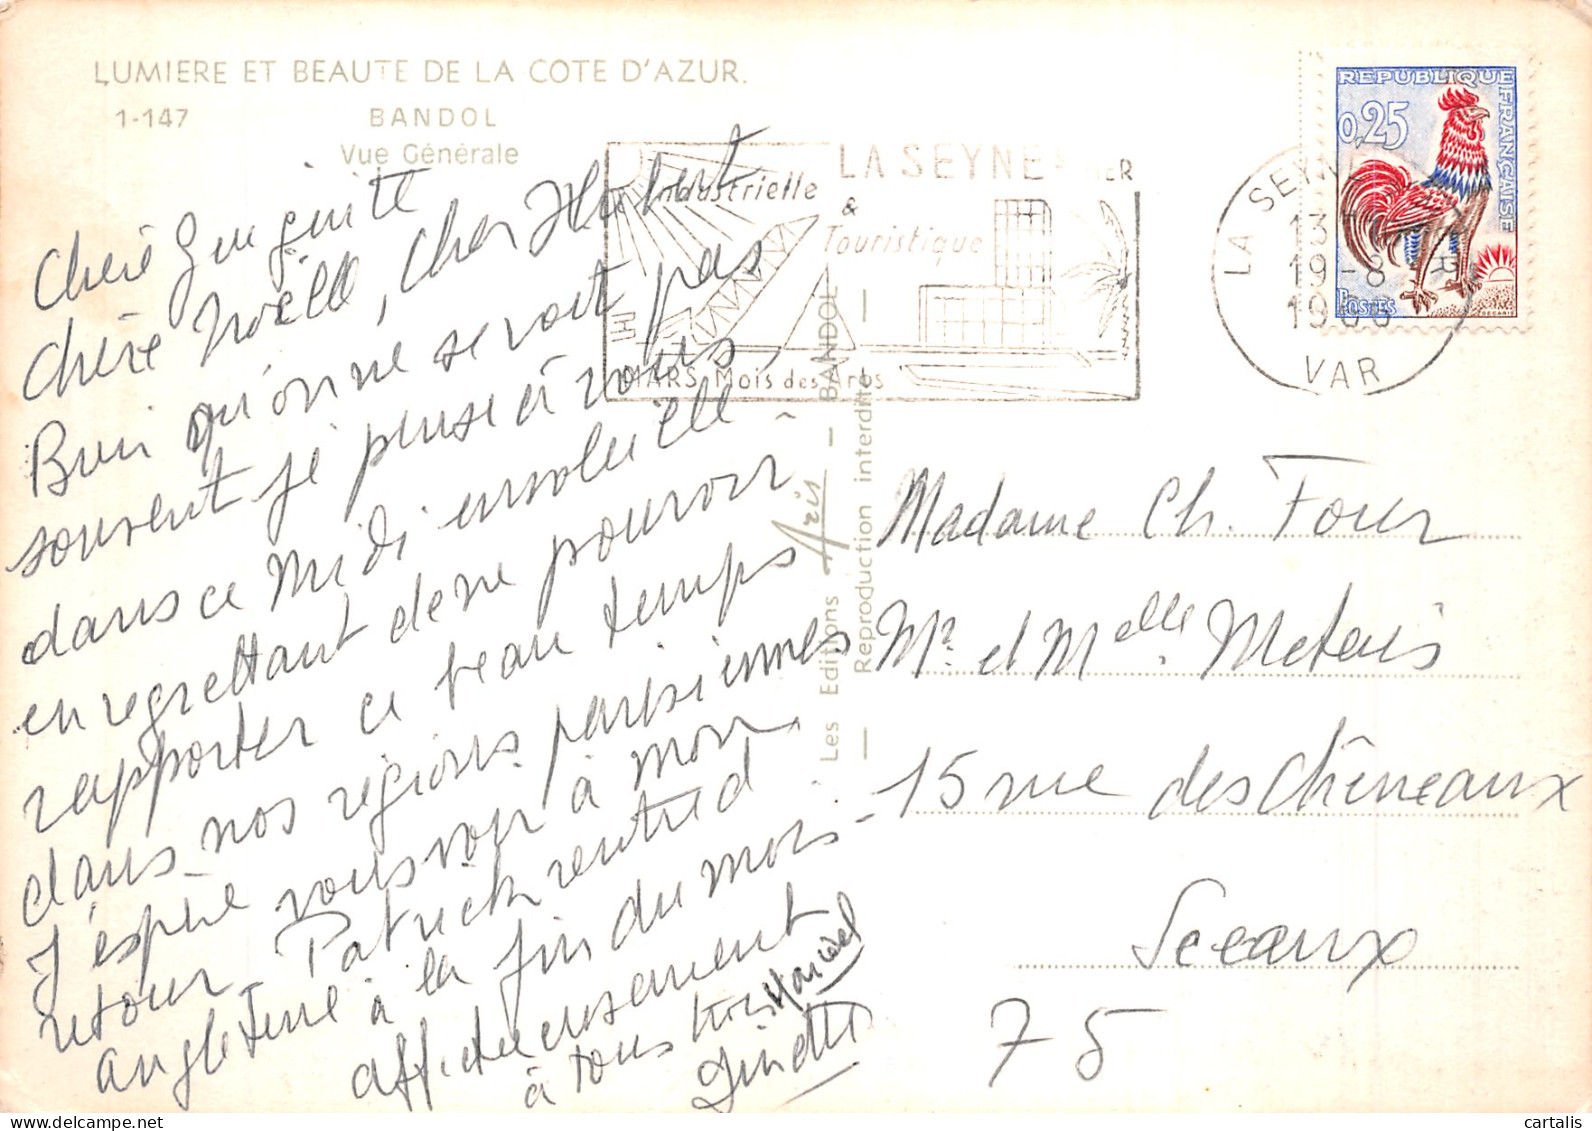 LUMIERE ET BEAUTE DE LA COTE D'AZUR.
1-147 BANDOL
Vue Générale
Chère
chère Noëlle, cher Hubert
Bien qu'on ne se voit pas
souvent je pense à vous
dans ce Midi ensoleillé
en regrettant de ne pouvoir
rapporter ce beau temps
dans nos régions parisiennes
J'espère vous voir à mon
retour. Patrick rentre d'
angleterre à la fin du mois -
affectueusement
à tous trois
Ginette
LA SEYNE
Industrielle
&
Touristique
MARS Mois des Arts
Les Editions Aris - BANDOL -
Reproduction interdite
LA SEYNE
19-8
VAR
REPUBLIQUE FRANÇAISE
0,25
POSTES
Madame Ch. Four
Mr et Melle Metais
15 rue des Chêneaux
Sceaux
75
cartalis